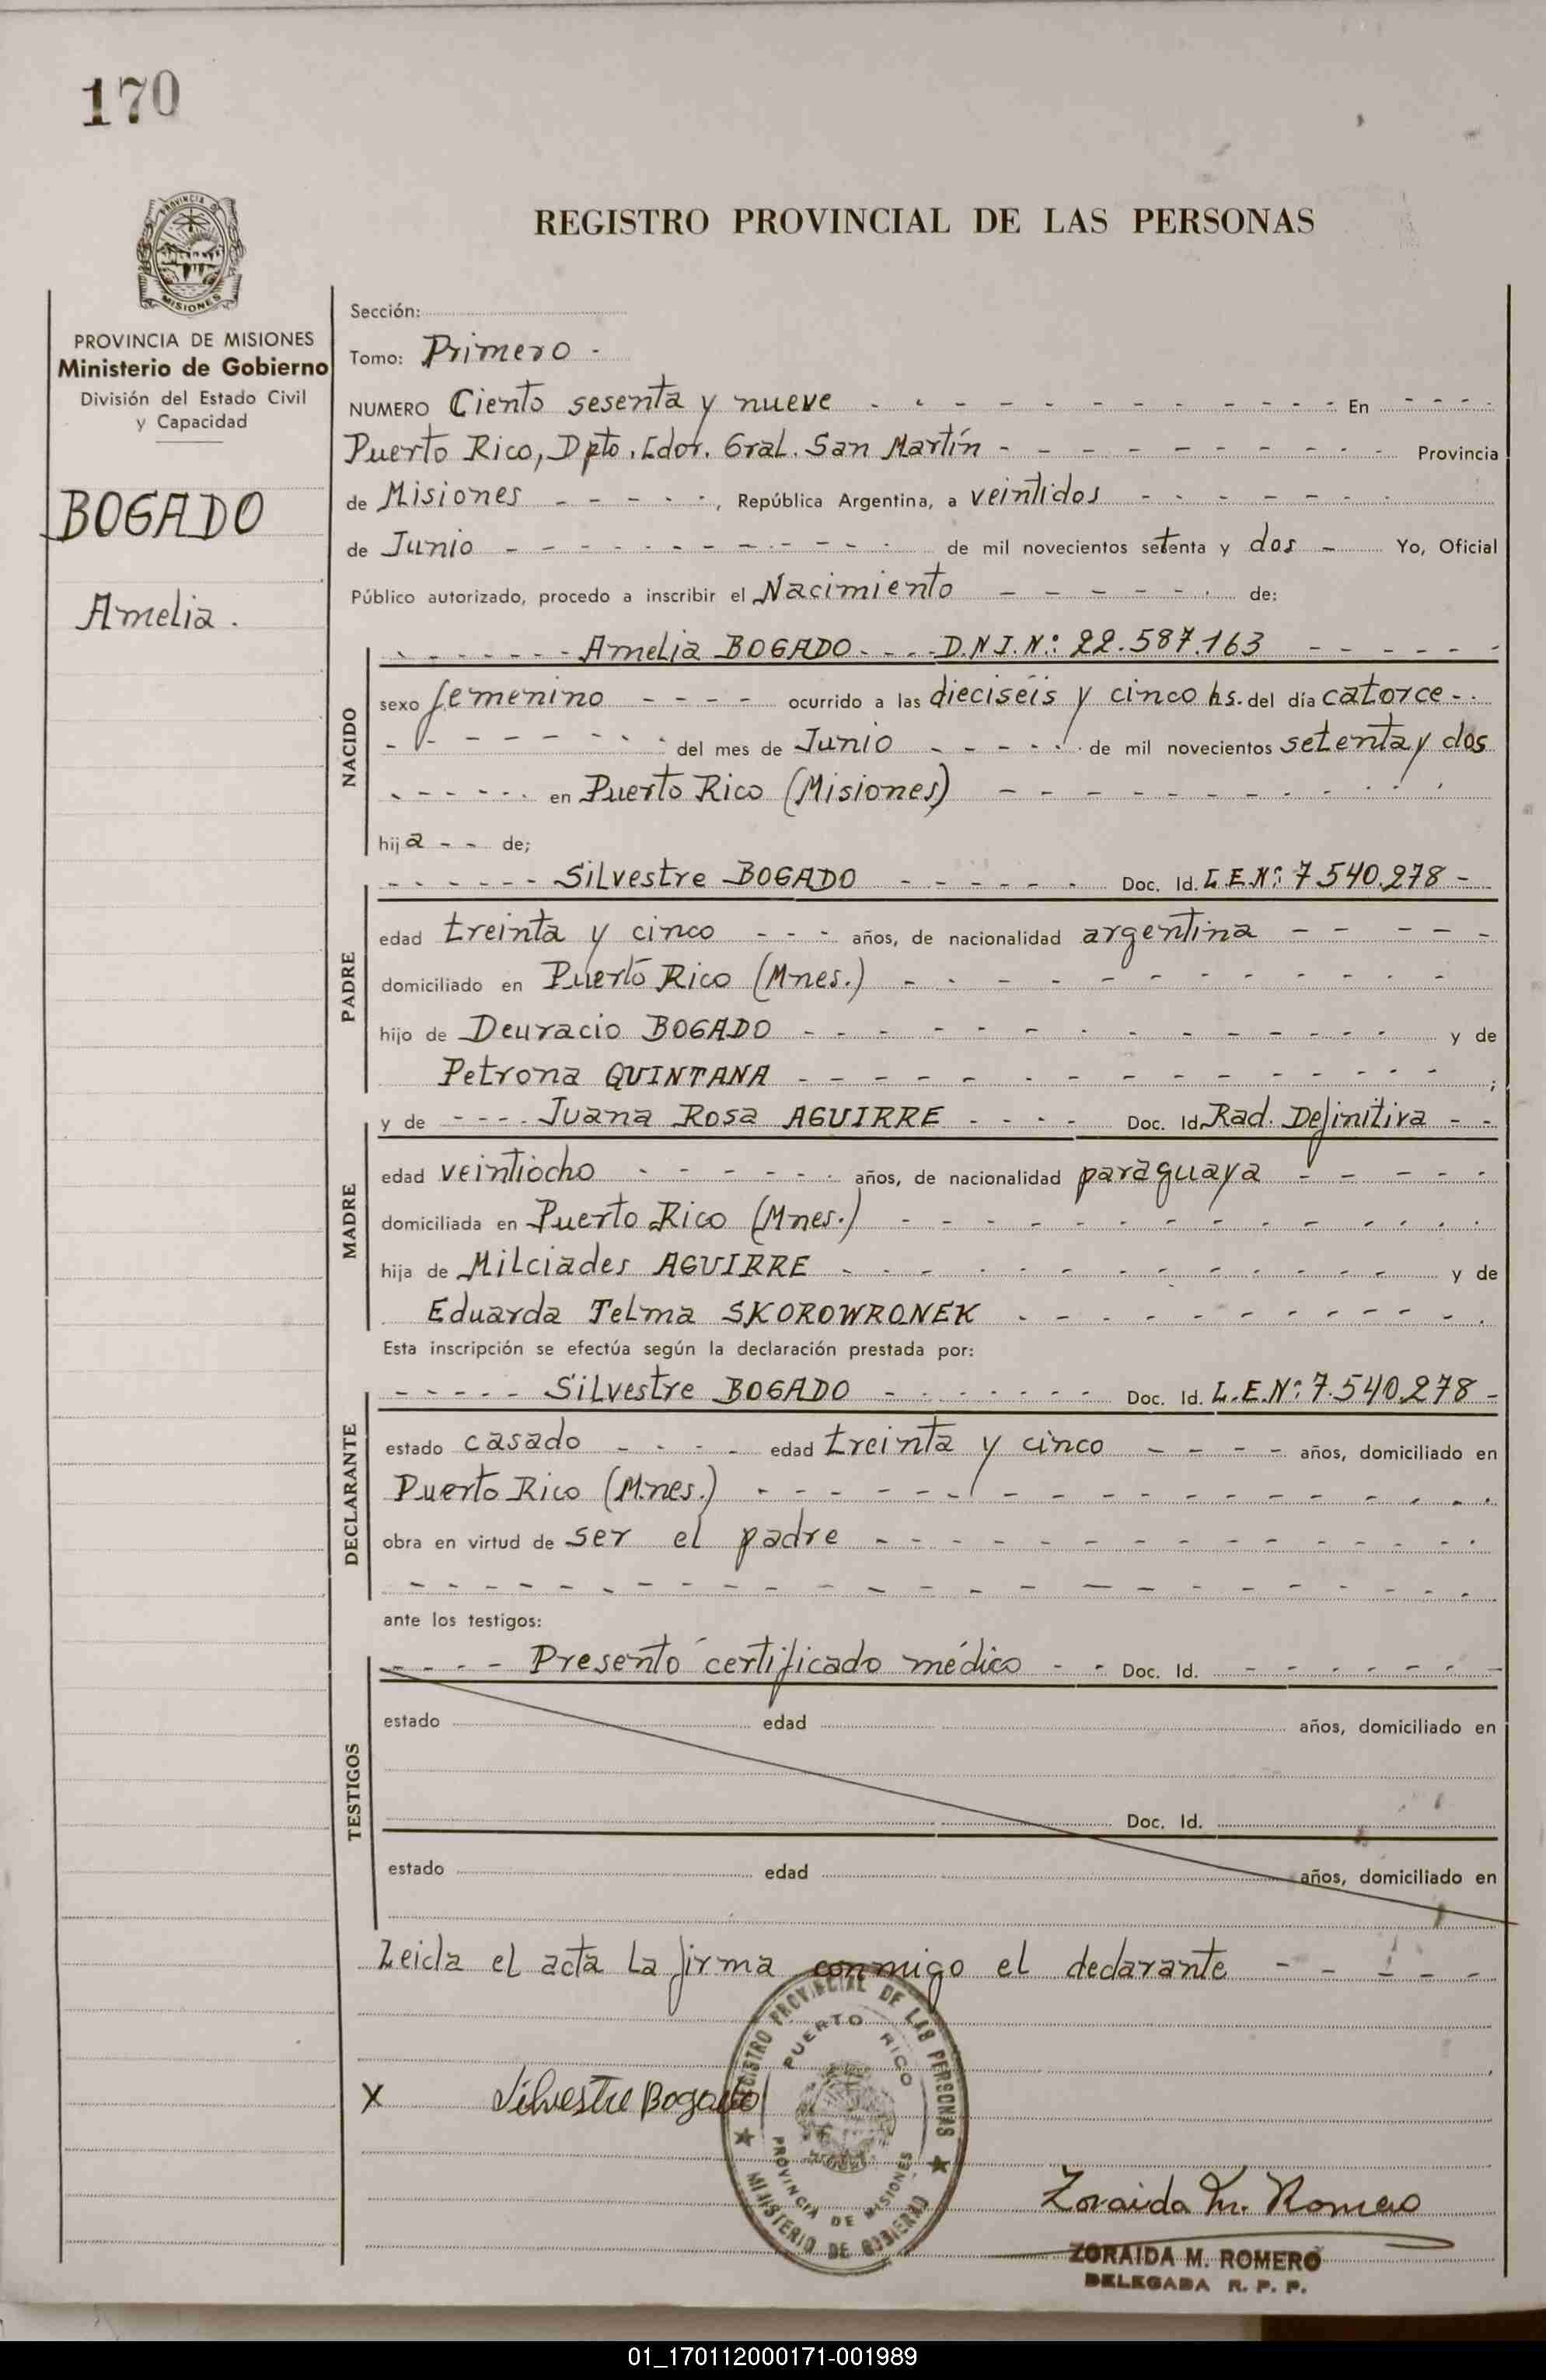 170
PROVINCIA DE MISIONES
MISIONES
PROVINCIA DE MISIONES
Ministerio de Gobierno
División del Estado Civil
y Capacidad
BOGADO
Amelia.
REGISTRO PROVINCIAL DE LAS PERSONAS
Sección:
Tomo: Primero -
NUMERO Ciento sesenta y nueve - - - - En - - - -
Puerto Rico, Dpto. Ldor. Gral. San Martín - - - - Provincia
de Misiones - - - - -, República Argentina, a veintidos - - - -
de Junio - - - - de mil novecientos setenta y dos - Yo, Oficial
Público autorizado, procedo a inscribir el Nacimiento - - - - de:
- - - - Amelia BOGADO - - - - D.N.I. Nº: 22.587.163 - - - -
NACIDO
sexo femenino - - - - ocurrido a las dieciséis y cinco hs. del día catorce - -
- - - - del mes de Junio - - - - de mil novecientos setenta y dos
- - - - en Puerto Rico (Misiones) - - - -
hija - - de;
PADRE
- - - - Silvestre BOGADO - - - - Doc. Id. L.E.Nº: 7.540.278 -
edad treinta y cinco - - - años, de nacionalidad argentina - - - -
domiciliado en Puerto Rico (Mnes.) - - - -
hijo de Deuracio BOGADO - - - - y de
Petrona QUINTANA - - - - ;
MADRE
y de - - - - Juana Rosa AGUIRRE - - - - Doc. Id. Rad. Definitiva - -
edad veintiocho - - - - años, de nacionalidad paraguaya - - - -
domiciliada en Puerto Rico (Mnes.) - - - -
hija de Milciades AGUIRRE - - - - y de
Eduarda Telma SKOROWRONEK - - - -
Esta inscripción se efectúa según la declaración prestada por:
DECLARANTE
- - - - Silvestre BOGADO - - - - Doc. Id. L.E.Nº: 7.540.278 -
estado casado - - - - edad treinta y cinco - - - - años, domiciliado en
Puerto Rico (Mnes.) - - - -
obra en virtud de ser el padre - - - -
ante los testigos:
TESTIGOS
- - - - Presentó certificado médico - - Doc. Id. - - - -
estado edad años, domiciliado en
Doc. Id.
estado edad años, domiciliado en
Leida el acta la firma conmigo el declarante - - - -
X Silvestre Bogado
REGISTRO PROVINCIAL DE LAS PERSONAS
PUERTO RICO
PROVINCIA DE MISIONES
MINISTERIO DE GOBIERNO
Zoraida M. Romero
ZORAIDA M. ROMERO
DELEGADA R. P. P.
01_170112000171-001989